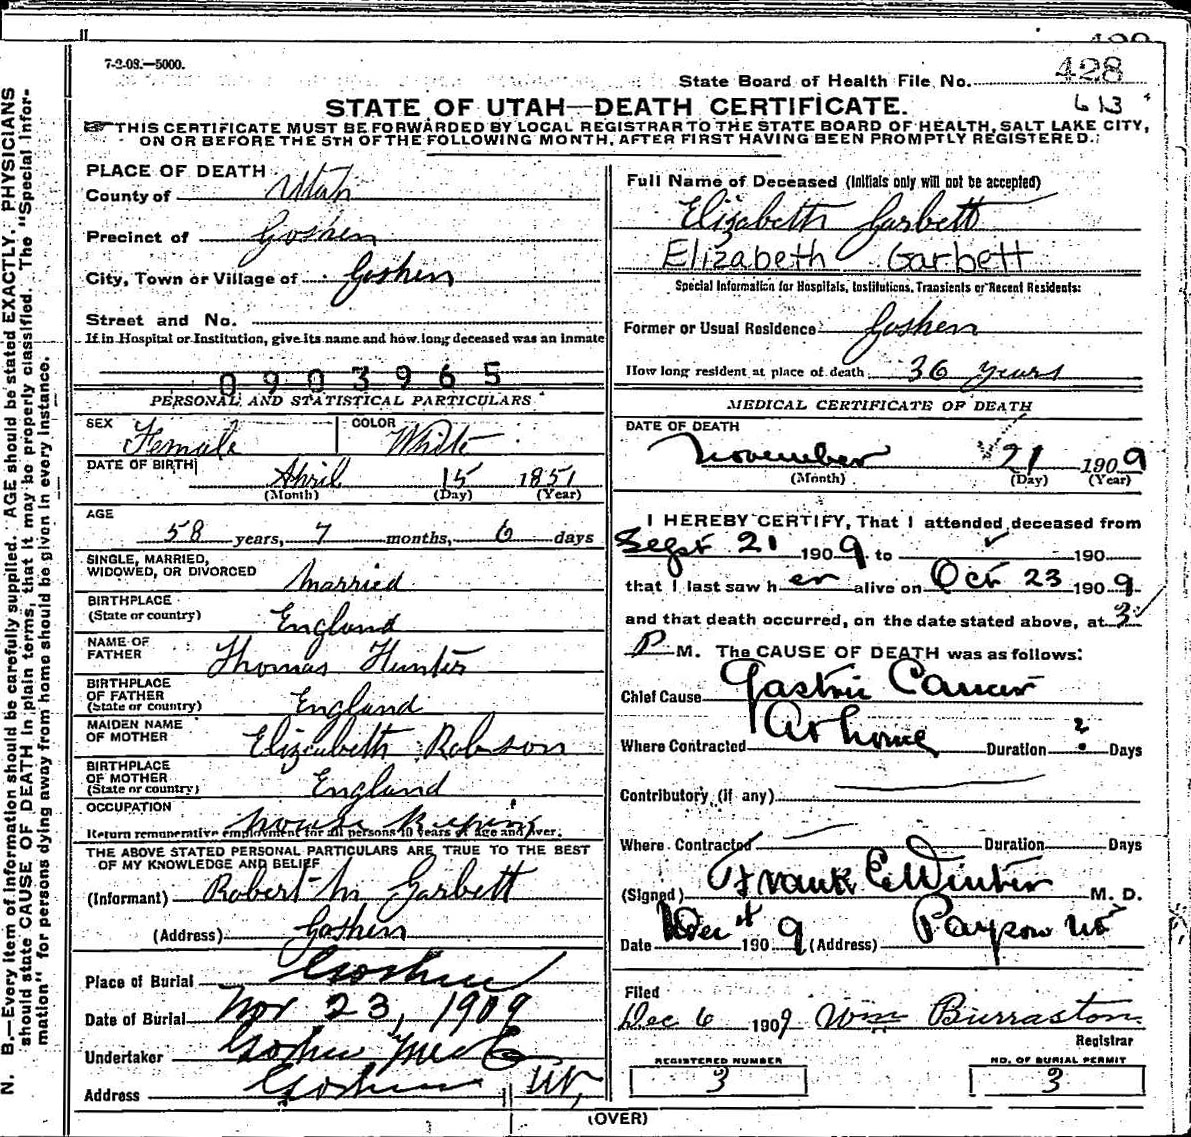 428
7-2-08.—5000.
State Board of Health File No. 428
STATE OF UTAH—DEATH CERTIFICATE.
613
THIS CERTIFICATE MUST BE FORWARDED BY LOCAL REGISTRAR TO THE STATE BOARD OF HEALTH, SALT LAKE CITY,
ON OR BEFORE THE 5TH OF THE FOLLOWING MONTH, AFTER FIRST HAVING BEEN PROMPTLY REGISTERED.
N. B.—Every item of information should be carefully supplied. AGE should be stated EXACTLY. PHYSICIANS
should state CAUSE OF DEATH in plain terms, that it may be properly classified. The "Special Infor-
mation" for persons dying away from home should be given in every instance.
PLACE OF DEATH
County of Utah
Precinct of Goshen
City, Town or Village of Goshen
Street and No.
If in Hospital or Institution, give its name and how long deceased was an inmate
0903965
PERSONAL AND STATISTICAL PARTICULARS
SEX Female COLOR White
DATE OF BIRTH April 15 1851
(Month) (Day) (Year)
AGE
58 years, 7 months, 6 days
SINGLE, MARRIED,
WIDOWED, OR DIVORCED Married
BIRTHPLACE
(State or country) England
NAME OF
FATHER Thomas Hunter
BIRTHPLACE
OF FATHER
(State or country) England
MAIDEN NAME
OF MOTHER Elizabeth Robson
BIRTHPLACE
OF MOTHER
(State or country) England
OCCUPATION House Keeping
Return remunerative employment for all persons 10 years of age and over.
THE ABOVE STATED PERSONAL PARTICULARS ARE TRUE TO THE BEST
OF MY KNOWLEDGE AND BELIEF
(Informant) Robert M. Garbett
(Address) Goshen
Place of Burial Goshen
Date of Burial Nov 23, 1909
Undertaker Goshen
Address Goshen Ut,
Full Name of Deceased (Initials only will not be accepted)
Elizabeth Garbett
Elizabeth Garbett
Special Information for Hospitals, Institutions, Transients or Recent Residents:
Former or Usual Residence Goshen
How long resident at place of death 36 years
MEDICAL CERTIFICATE OF DEATH
DATE OF DEATH
November 21 1909
(Month) (Day) (Year)
I HEREBY CERTIFY, That I attended deceased from
Sept 21 1909 to 190
that I last saw her alive on Oct 23 1909
and that death occurred, on the date stated above, at 3
P M. The CAUSE OF DEATH was as follows:
Chief Cause Gastric Cancer
Where Contracted At home Duration ? Days
Contributory (if any)
Where Contracted Duration Days
(Signed) Frank E Winter M. D.
Date Dec 4 1909 (Address) Payson Ut
Filed
Dec 6 1909 Wm Burraston
Registrar
REGISTERED NUMBER
3
NO. OF BURIAL PERMIT
3
(OVER)